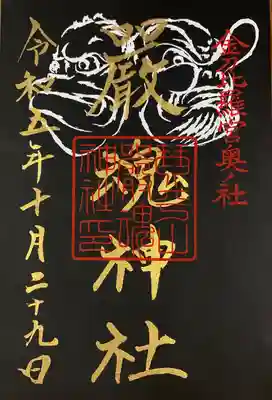 金刀比羅宮奥ノ社
嚴魂神社
令和五年十月二十九日